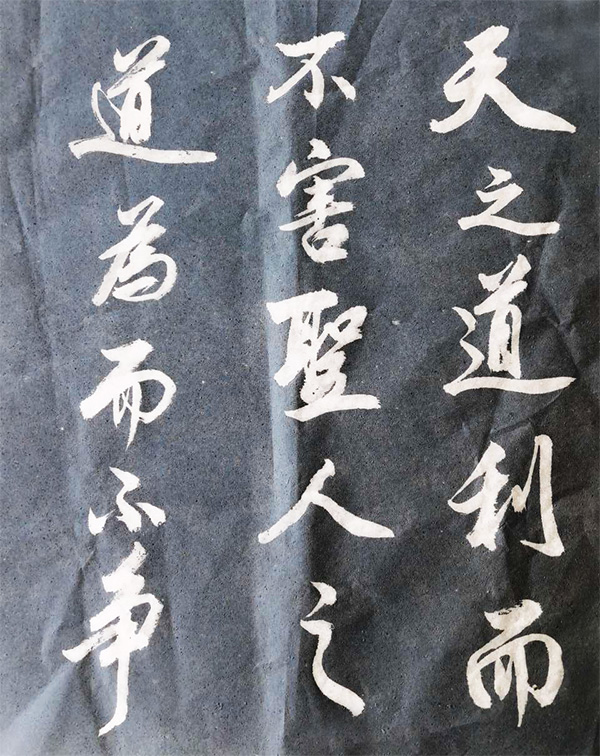 天之道利而
不害聖人之
道為而不争